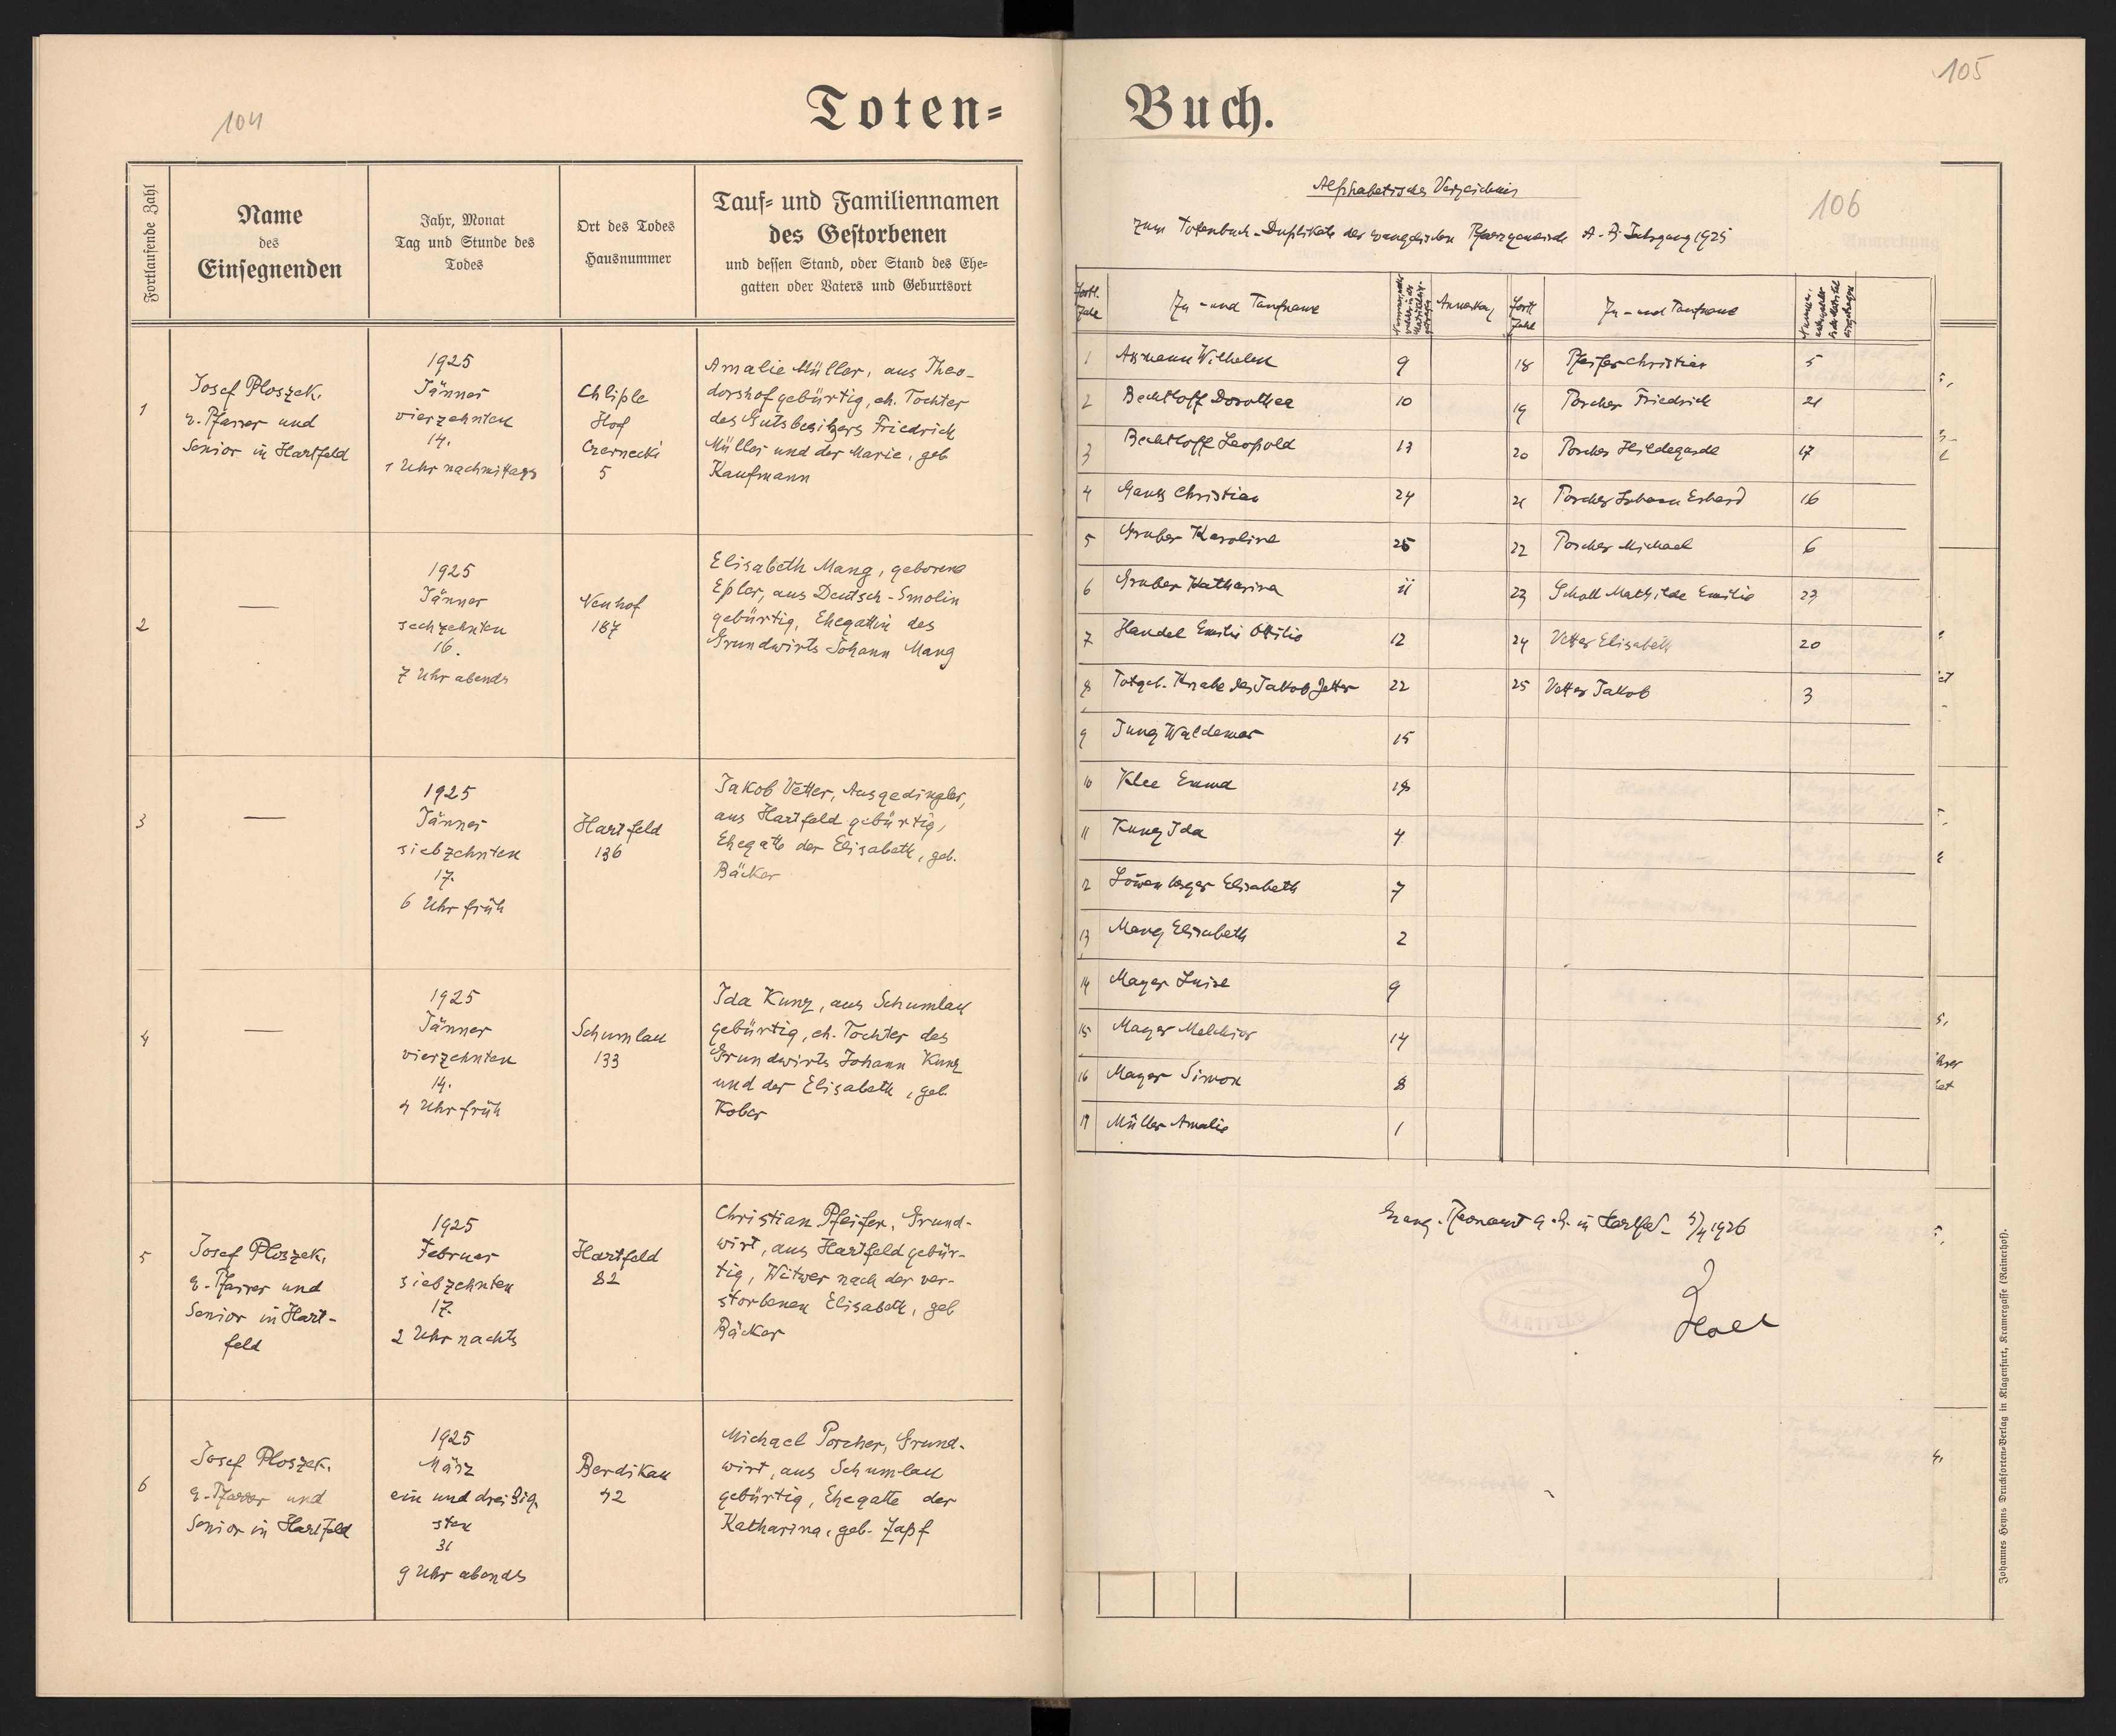 104
Toten=
Fortlaufende Zahl
Name
des
Einsegnenden
Jahr, Monat
Tag und Stunde des
Todes
Ort des Todes
Hausnummer
Tauf= und Familiennamen
des Gestorbenen
und dessen Stand, oder Stand des Ehe=
gatten oder Vaters und Geburtsort
1
Josef Ploszek,
e. Pfarrer und
Senior in Hartfeld
1925
Jänner
vierzehnten
14.
1 Uhr nachmittags
Chliple
Hof
Czernecki
5
Amalie Müller, aus Theo-
dorshof gebürtig, eh. Tochter
des Gutsbesitzers Friedrich
Müller und der Marie, geb
Kaufmann
2
—
1925
Jänner
sechzehnten
16.
7 Uhr abends
Neuhof
187
Elisabeth Mang, geborene
Epler, aus Deutsch-Smolin
gebürtig, Ehegattin des
Grundwirts Johann Mang
3
—
1925
Jänner
siebzehnten
17.
6 Uhr früh
Hartfeld
136
Jakob Vetter, Ausgedingler,
aus Hartfeld gebürtig,
Ehegatte der Elisabeth, geb.
Bäcker
4
—
1925
Jänner
vierzehnten
14.
4 Uhr früh
Schumlau
133
Ida Kunz, aus Schumlau
gebürtig, eh. Tochter des
Grundwirts Johann Kunz
und der Elisabeth, geb.
Kober
5
Josef Ploszek,
e. Pfarrer und
Senior in Hart-
feld
1925
Februar
siebzehnten
17.
2 Uhr nachts
Hartfeld
82
Christian Pfeifer, Grund-
wirt, aus Hartfeld gebür-
tig, Witwer nach der ver-
storbenen Elisabeth, geb
Bäcker
6
Josef Ploszek,
e. Pfarrer und
Senior in Hartfeld
1925
März
ein und dreißig-
sten
31
9 Uhr abends
Berdikau
42
Michael Porcher, Grund-
wirt, aus Schumlau
gebürtig, Ehegatte der
Katharina, geb. Zapf
105
Buch.
106
Alphabetisches Verzeichnis
zum Totenbuch-Duplikate der evangelischen Pfarrgemeinde A. B. Jahrgang 1925
Fortl. Zahl
Zu- und Taufname
Anmerkung
Fortl. Zahl
Zu- und Taufname
1 Assmann Wilhelm 9
2 Bechtloff Dorothea 10
3 Bechtloff Leopold 13
4 Gauss Christian 24
5 Gruber Karoline 25
6 Gruber Katharina 11
7 Handel Emilie Ottilie 12
8 Totgeb. Knabe des Jakob Jetter 22
9 Jung Waldemar 15
10 Klee Emma 18
11 Kunz Ida 4
12 Löwenberger Elisabeth 7
13 Mang Elisabeth 2
14 Mayer Luise 9
15 Mayer Melchior 14
16 Mayer Simon 8
17 Müller Amalie 1
18 Pfeifer Christian 5
19 Porcher Friedrich 21
20 Porcher Hildegarde 17
21 Porcher Johann Erhard 16
22 Porcher Michael 6
23 Scholl Mathilde Emilie 23
24 Vetter Elisabeth 20
25 Vetter Jakob 3
Evang. Pfarramt A. B. in Hartfeld 5/4 1926
HARTFELD
Johannes Heyns Drucksorten=Verlag in Klagenfurt, Kramergasse (Rainerhof).